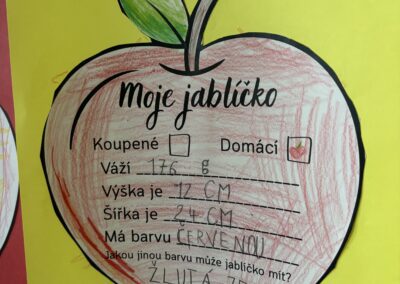 Moje jablíčko
Koupené Domácí
Váží 176 g
Výška je 12 CM
Šířka je 24 CM
Má barvu ČERVENOU
Jakou jinou barvu může jablíčko mít?
ŽLUTÁ